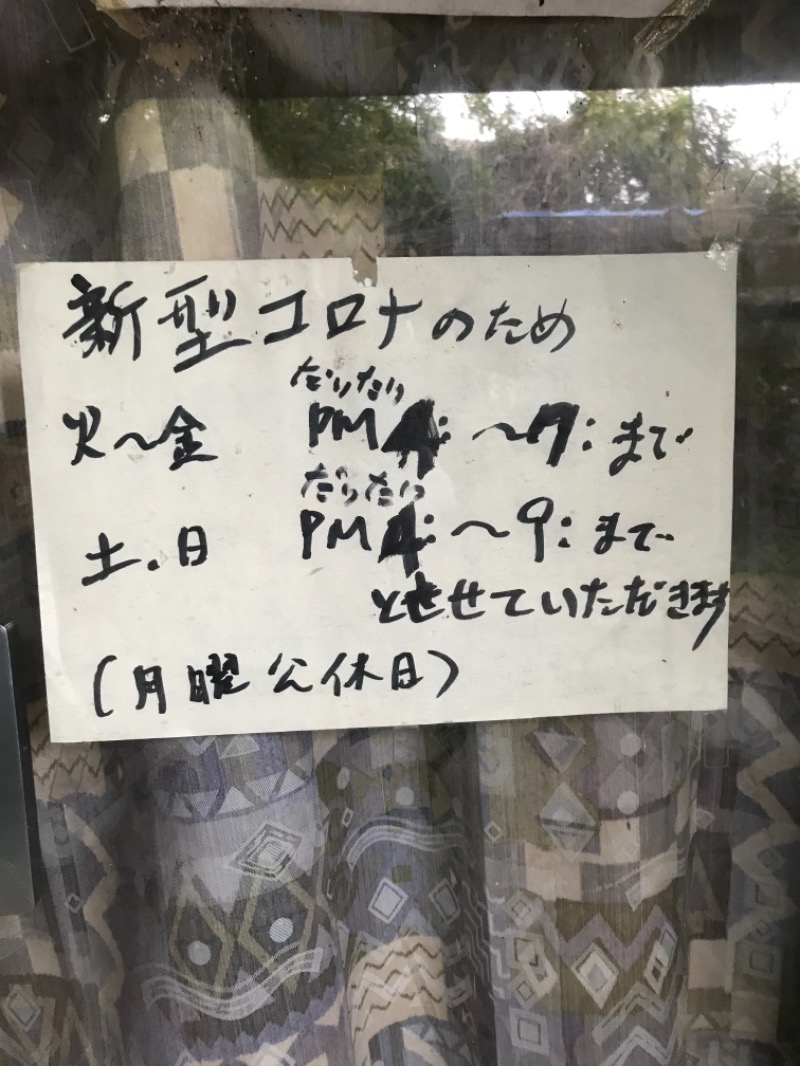 新型コロナのため
だいたい
火～金 PM 4:～7:まで
だいたい
土.日 PM 4:～9:まで
とさせていただきます
(月曜公休日)